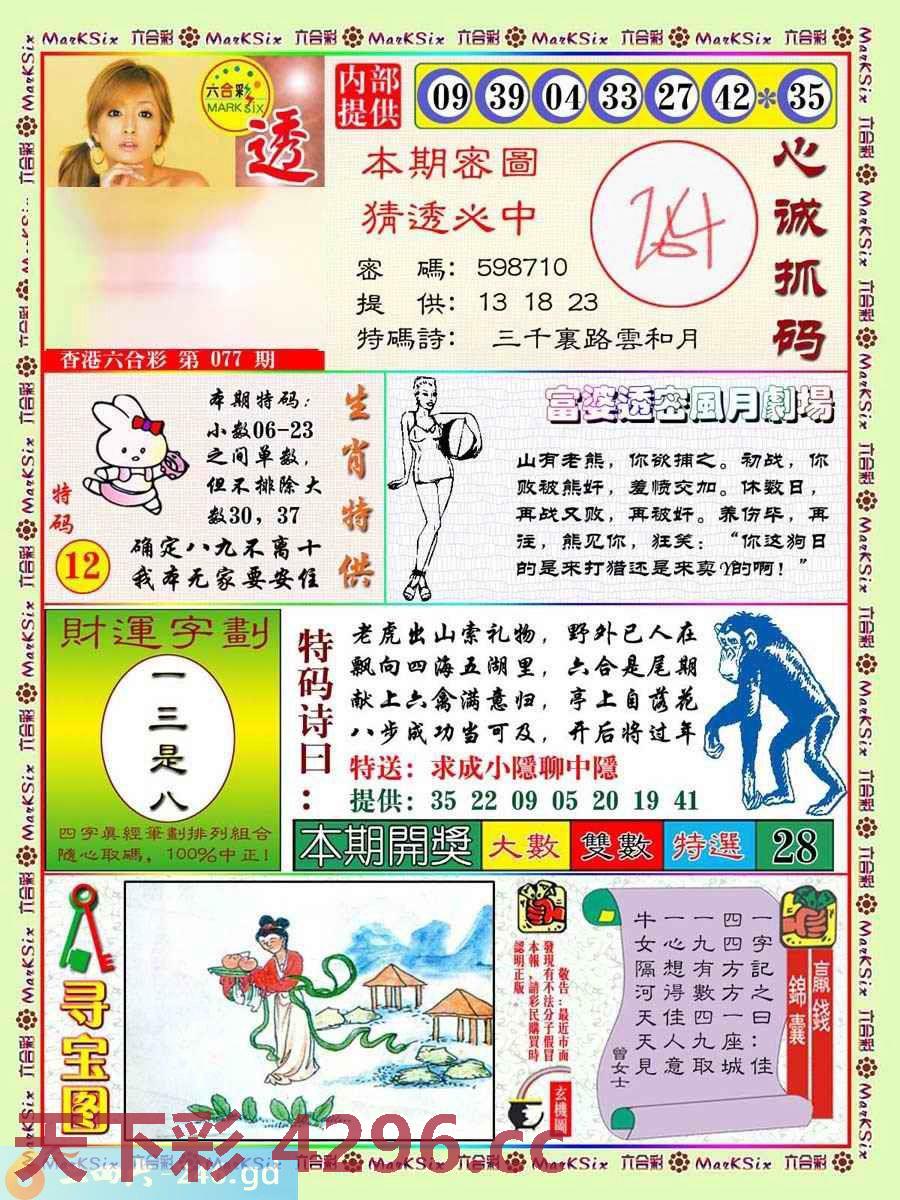 六合彩 MarKSix 六合彩 MarKSix 六合彩 MarKSix 六合彩 MarKSix 六合彩 MarKSix 六合彩
六合彩
MARK Six
透
内部
提供
09 39 04 33 27 42 * 35
本期密圖
猜透必中
密 碼: 598710
提 供: 13 18 23
特碼詩: 三千裏路雲和月
心诚抓码
香港六合彩 第 077 期
本期特码:
小数06-23
之间单数,
但不排除大
数30, 37
确定八九不离十
我本无家要安住
特码
12
生肖特供
富婆透密風月劇場
山有老熊,你欲捕之。初战,你
败被熊奸,羞愤交加。休数日,
再战又败,再被奸。养伤毕,再
往,熊见你,狂笑:“你这狗日
的是来打猎还是来卖Y的啊!”
財運字劃
一三是八
四字眞經筆劃排列組合
隨心取碼, 100%中正!
特码诗曰:
老虎出山索礼物,野外已人在
飘向四海五湖里,六合是尾期
献上六禽满意归,亭上自落花
八步成功当可及,开后将过年
特送: 求成小隱聊中隱
提供: 35 22 09 05 20 19 41
本期開獎 大數 雙數 特選 28
寻宝图
敬告:最近市面
發現有不法分子假冒
本報,請彩民購買時
認明正版。
玄機圖
贏錢
錦囊
一字記之曰:佳
四四方方一座城
一九有數四九取
一心想得佳人意
牛女隔河天天見
曾女士
天下彩 4296.cc
六合彩 MarKSix 六合彩 MarKSix 六合彩 MarKSix 六合彩 MarKSix 六合彩